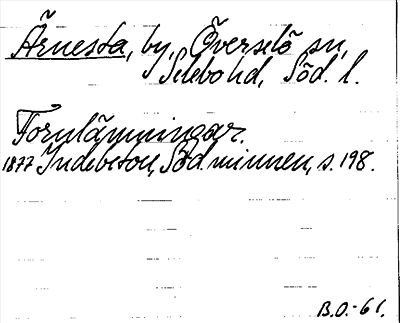 Ärnesta, by, Överselö sn,
Selebo hd, Söd. l.
Fornlämningar.
1877 Indebetou, Söd. minnen, s. 198.
B.O. - 61.